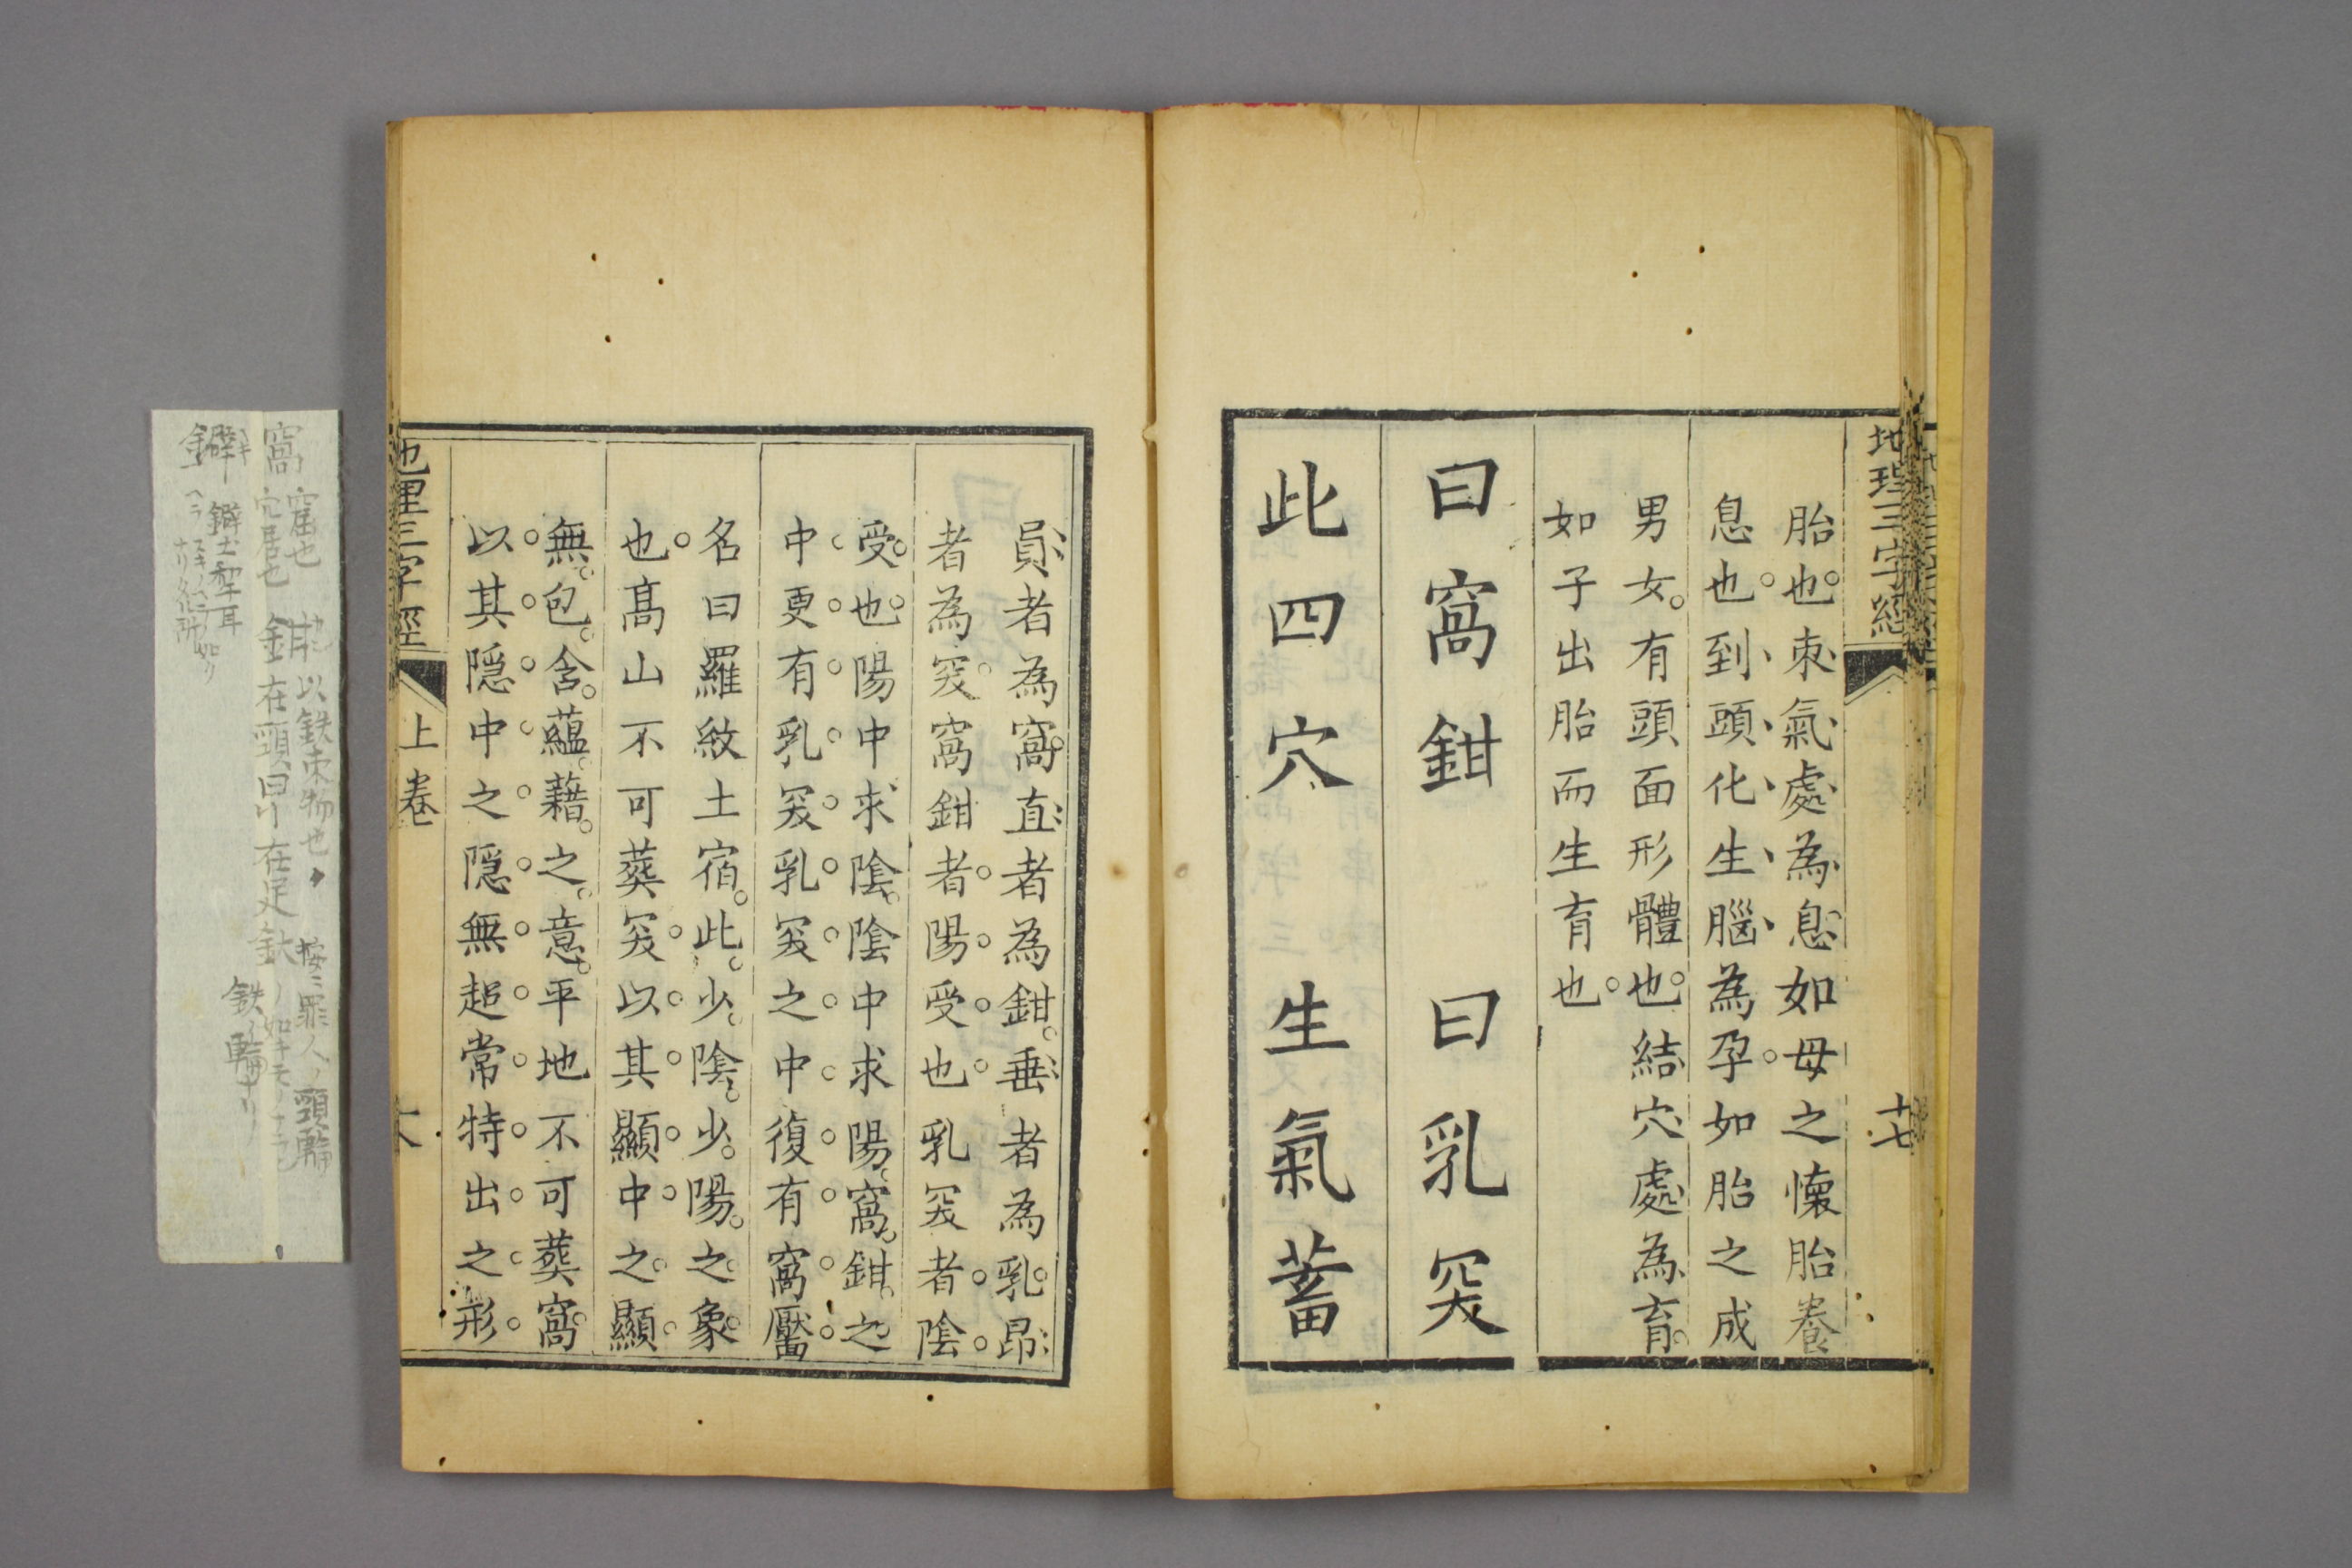 地理三字經
十七
胎也束氣處為息如母之懷胎養
息也到頭化生腦為孕如胎之成
男女有頭面形體也結穴處為育
如子出胎而生育也
曰窩鉗 曰乳突
此四穴 生氣蓄
員者為窩直者為鉗垂者為乳昂
者為突窩鉗者陽受也乳突者陰
受也陽中求陰陰中求陽窩鉗之
中更有乳突乳突之中復有窩靨
名曰羅紋土宿此少陰少陽之象
也高山不可葬突以其顯中之顯
無包含蘊藉之意平地不可葬窩
以其隱中之隱無超常特出之形
地理三字經 上卷
窩 窟也
穴居也
鉗 以鉄束物也
在頸曰〃在足
鐴 鐴土犂耳